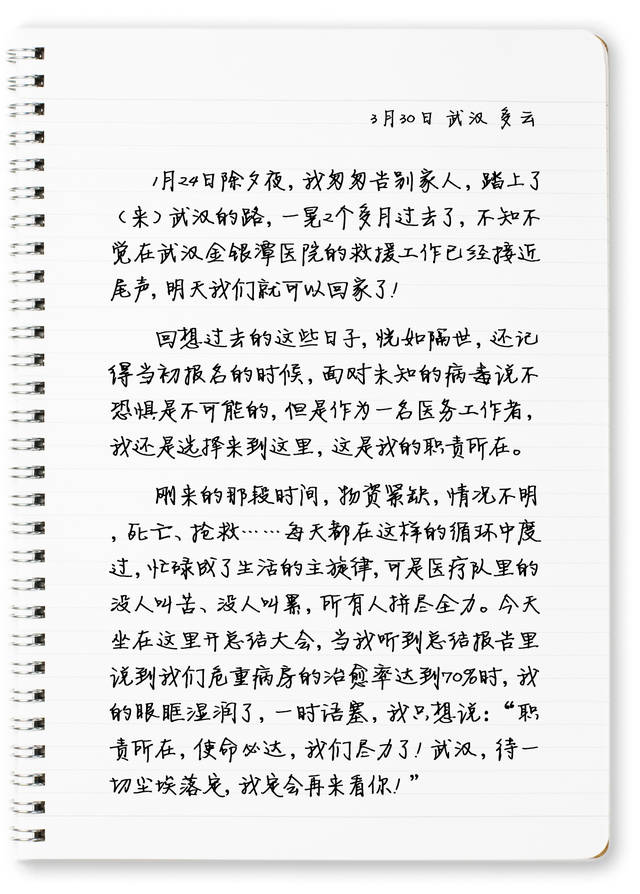 3月30日 武汉 多云
1月24日除夕夜，我匆匆告别家人，踏上了
（来）武汉的路，一晃2个多月过去了，不知不
觉在武汉金银潭医院的救援工作已经接近
尾声，明天我们就可以回家了！
回想过去的这些日子，恍如隔世，还记
得当初报名的时候，面对未知的病毒说不
恐惧是不可能的，但是作为一名医务工作者，
我还是选择来到这里，这是我的职责所在。
刚来的那段时间，物资紧缺，情况不明
，死亡、抢救……每天都在这样的循环中度
过，忙碌成了生活的主旋律，可是医疗队里的
没人叫苦、没人叫累，所有人拼尽全力。今天
坐在这里开总结大会，当我听到总结报告里
说到我们危重病房的治愈率达到70%时，我
的眼眶湿润了，一时语塞，我只想说：“职
责所在，使命必达，我们尽力了！武汉，待一
切尘埃落定，我定会再来看你！”